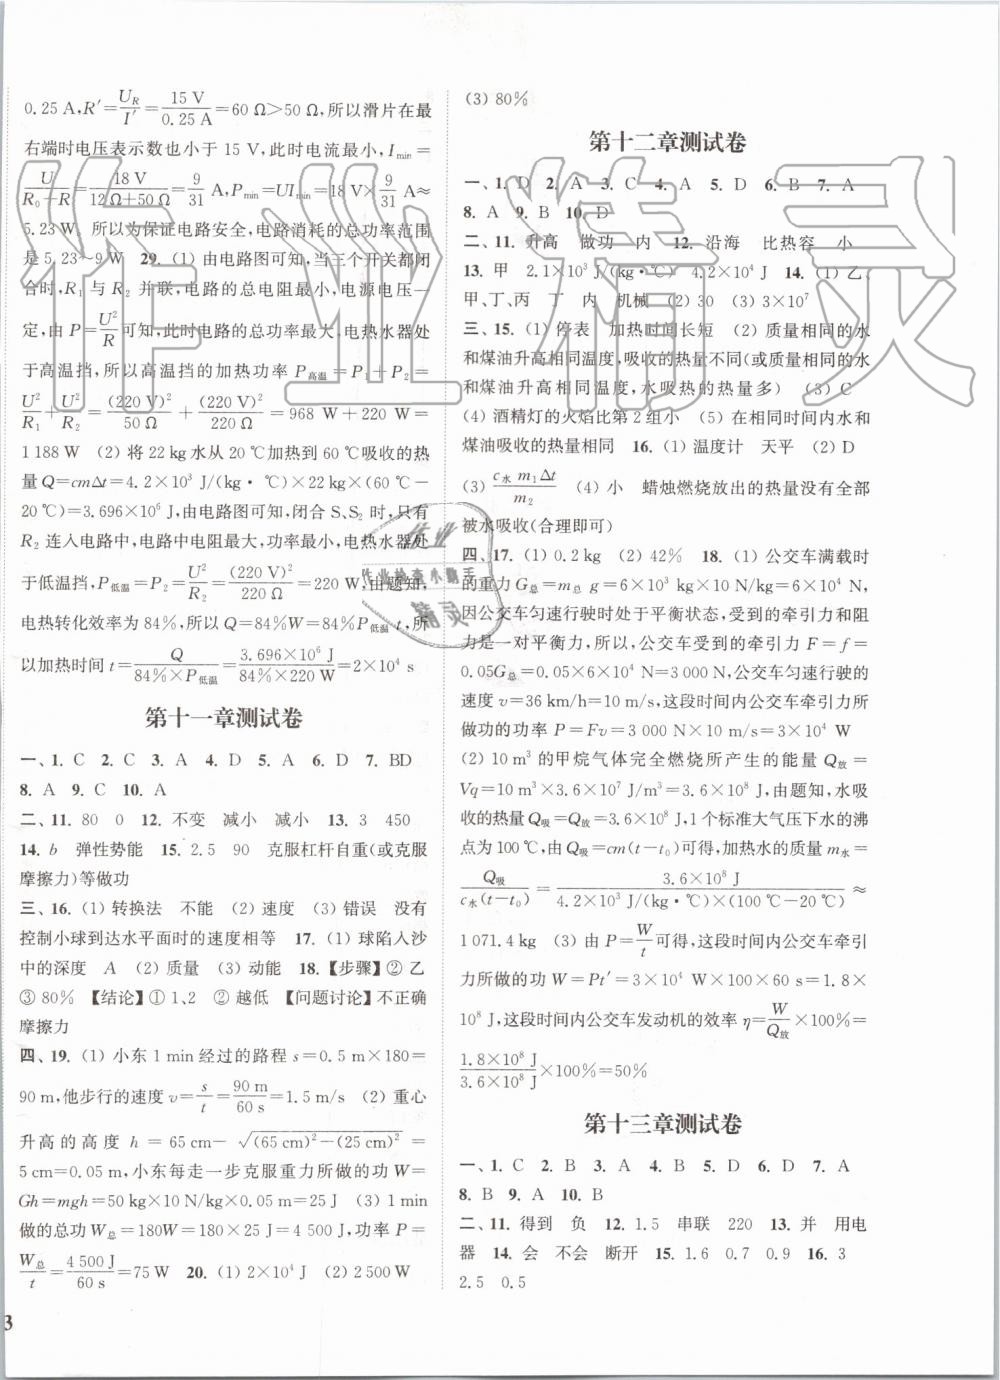 0.25 A,R′=U_R/I′=15 V/0.25 A=60 Ω>50 Ω,所以滑片在最
右端时电压表示数也小于 15 V,此时电流最小,I_min=
U/(R₀+R)=18 V/(12 Ω+50 Ω)=9/31 A,P_min=UI_min=18 V×9/31 A≈
5.23 W。所以为保证电路安全,电路消耗的总功率范围
是 5.23~9 W 29. (1) 由电路图可知,当三个开关都闭
合时,R₁ 与 R₂ 并联,电路的总电阻最小,电源电压一
定,由 P=U²/R可知,此时电路的总功率最大,电热水器处
于高温挡,所以高温挡的加热功率 P_高温=P₁+P₂=
U²/R₁+U²/R₂=(220 V)²/50 Ω+(220 V)²/220 Ω=968 W+220 W=
1 188 W (2) 将 22 kg 水从 20 ℃加热到 60 ℃吸收的热
量 Q=cmΔt=4.2×10³ J/(kg·℃)×22 kg×(60 ℃-
20 ℃)=3.696×10⁶ J,由电路图可知,闭合 S、S₂ 时,只有
R₂ 连入电路中,电路中电阻最大,功率最小,电热水器处
于低温挡,P_低温=U²/R₂=(220 V)²/220 Ω=220 W,由题知,
电热转化效率为 84%,所以 Q=84%W=84%P_低温 t,所
以加热时间 t=Q/(84%×P_低温)=3.696×10⁶ J/(84%×220 W)=2×10⁴ s
第十一章测试卷
一、1. C 2. C 3. A 4. D 5. A 6. D 7. BD
8. A 9. C 10. A
二、11. 80 0 12. 不变 减小 减小 13. 3 450
14. b 弹性势能 15. 2.5 90 克服杠杆自重(或克服
摩擦力)等做功
三、16. (1) 转换法 不能 (2) 速度 (3) 错误 没有
控制小球到达水平面时的速度相等 17. (1) 球陷入沙
中的深度 A (2) 质量 (3) 动能 18.【步骤】② 乙
③ 80% 【结论】① 1、2 ② 越低 【问题讨论】不正确
摩擦力
四、19. (1) 小东 1 min 经过的路程 s=0.5 m×180=
90 m,他步行的速度 v=s/t=90 m/60 s=1.5 m/s (2) 重心
升高的高度 h=65 cm-√((65 cm)²-(25 cm)²)=
5 cm=0.05 m,小东每走一步克服重力所做的功 W=
Gh=mgh=50 kg×10 N/kg×0.05 m=25 J (3) 1 min
做的总功 W_总=180W=180×25 J=4 500 J,功率 P=
W_总/t=4 500 J/60 s=75 W 20. (1) 2×10⁴ J (2) 2 500 W
3
(3) 80%
第十二章测试卷
一、1. D 2. A 3. C 4. A 5. D 6. B 7. A
8. A 9. B 10. D
二、11. 升高 做功 内 12. 沿海 比热容 小
13. 甲 2.1×10³ J/(kg·℃) 4.2×10⁴ J 14. (1) 乙、
甲、丁、丙 丁 内 机械 (2) 30 (3) 3×10⁷
三、15. (1) 停表 加热时间长短 (2) 质量相同的水
和煤油升高相同温度,吸收的热量不同(或质量相同的水
和煤油升高相同温度,水吸热的热量多) (3) C
(4) 酒精灯的火焰比第 2 组小 (5) 在相同时间内水和
煤油吸收的热量相同 16. (1) 温度计 天平 (2) D
(3) c_水 m₁Δt/m₂ (4) 小 蜡烛燃烧放出的热量没有全部
被水吸收(合理即可)
四、17. (1) 0.2 kg (2) 42% 18. (1) 公交车满载时
的重力 G_总=m_总 g=6×10³ kg×10 N/kg=6×10⁴ N,
因公交车匀速行驶时处于平衡状态,受到的牵引力和阻
力是一对平衡力,所以,公交车受到的牵引力 F=f=
0.05G_总=0.05×6×10⁴ N=3 000 N,公交车匀速行驶的
速度 v=36 km/h=10 m/s,这段时间内公交车牵引力
所做功的功率 P=Fv=3 000 N×10 m/s=3×10⁴ W
(2) 10 m³ 的甲烷气体完全燃烧所产生的能量 Q_放=
Vq=10 m³×3.6×10⁷ J/m³=3.6×10⁸ J,由题知,水吸
收的热量 Q_吸=Q_放=3.6×10⁸ J,1 个标准大气压下水的沸
点为 100 ℃,由 Q_吸=cm(t-t₀)可得,加热水的质量 m_水=
Q_吸/(c_水(t-t₀))=3.6×10⁸ J/(4.2×10³ J/(kg·℃)×(100 ℃-20 ℃))≈
1 071.4 kg (3) 由 P=W/t可得,这段时间内公交车牵引
力所做的功 W=Pt′=3×10⁴ W×100×60 s=1.8×
10⁸ J,这段时间内公交车发动机的效率 η=W/Q_放×100%=
1.8×10⁸ J/3.6×10⁸ J×100%=50%
第十三章测试卷
一、1. C 2. B 3. A 4. B 5. D 6. D 7. A
8. B 9. A 10. B
二、11. 得到 负 12. 1.5 串联 220 13. 并 用电
器 14. 会 不会 断开 15. 1.6 0.7 0.9 16. 3
2.5 0.5
作业精灵
作业
作业检查小助手
精灵